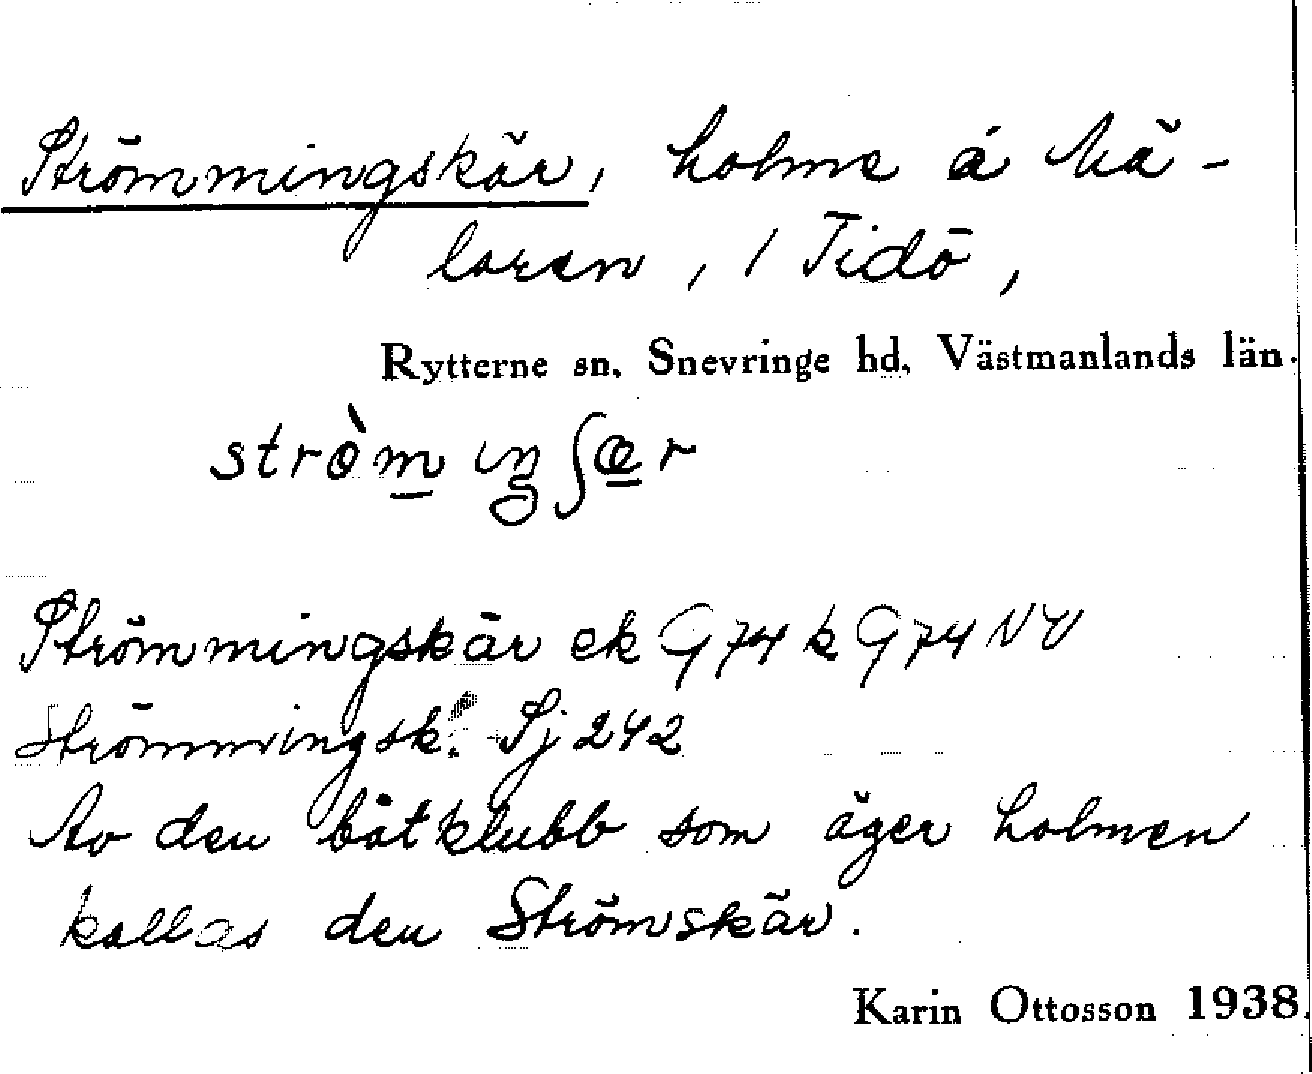 Strömmingskär, holme å Mä-
laren, / Tidö,
Rytterne sn. Snevringe hd. Västmanlands län.
strò̀m ıŋʃær
Strömmingskär ek G74 k G74 NV
Strömmingsk. Sj 242
Av den båtklubb som äger holmen
kallas den Strömskär.
Karin Ottosson 1938.